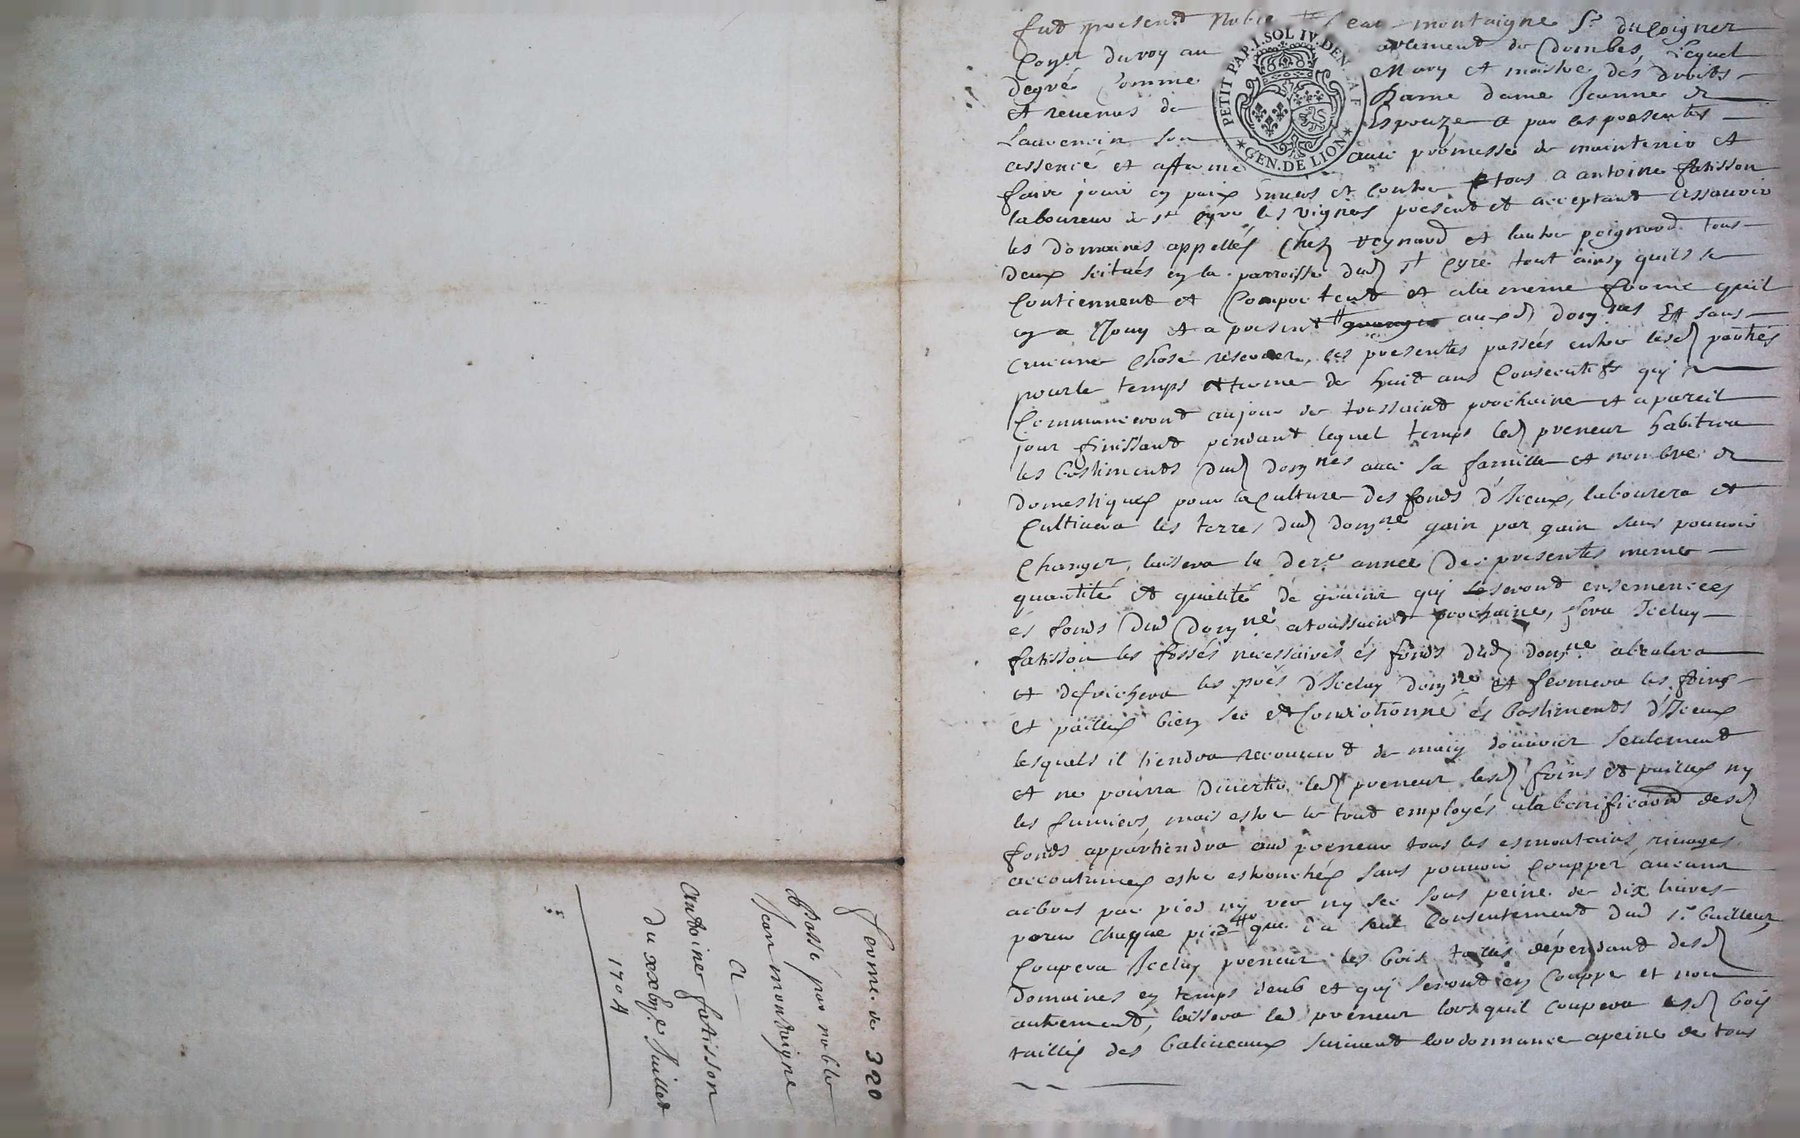 fut present Noble Jean montaigne Sr du Poigner
Coner du roy au parlement de Dombes, lequel
degré comme mary et maistre des droits
et revenus de Dame dame Jeanne de
Lauvernin son Espouze a par les presentes
assencé et affermé avec promesse de maintenir et
faire jouir en paix Envers et contre tous a antoine fatisson
laboureur de St Cyre les vignes present et acceptant Assavoir
les domaines appellés Chez reynaud et lautre poignard tous
deux scitués en la parroisse dud St Cyre tout ainsy quils se
Contiennent et Comportent et a la meme forme quil
en a Jouy et a present auxd domnes Et sans
aucune chose reserver, les presentes passées entre lesd parties
pour le temps et terme de huit ans Consecutifs qui
Commanceront au jour de toussaint prochaine et a pareil
jour finissant pendant lequel temps led preneur habitera
les bastiments dud domnes avec sa famille et nombre de
domestiques pour la Culture des fonds d'Iceux, labourera et
Cultivera les terres dud domne gain par gain sans pouvoir
Changer, laissera la dere année Des presentes meme
quantité et qualité de grains qui seront ensemencées
és fonds dud Domne a toussaint prochaine, fera Iceluy
fatisson les fossés necessaires és fonds dud domne
et defrichera les prés d'Iceluy domne et fermera les foins
et pailles bien sec et Conditionné és bastiments d'Iceux
lesquels il tiendra recouvert de main douvrier seulement
et ne pourra divertir led preneur lesd foins et pailles ny
les fumiers, mais estre le tout employés a la bonification desd
fonds appartiendra aud preneur tous les esmontains, rivages
accoutumés estre estronchés sans pouvoir Coupper aucuns
arbres par pied ny ver ny sec sous peine de dix livres
pour chaque pied que du seul Consentement dud Sr bailleur,
Coupera Iceluy preneur les bois taillis dépendant desd
domaines en temps deub et qui seront en Couppe et non
autrement, laissera led preneur lorsquil coupera lesd bois
taillis des balineaux suivant lordonnance a peine de tous
PETIT PAP. I. SOL IV. DEN. LA F.
* GEN. DE LION *
ferme de 320
Passé par noble
Jean montaigne
A
Antoine fatisson
du xxbje Juillet
1704